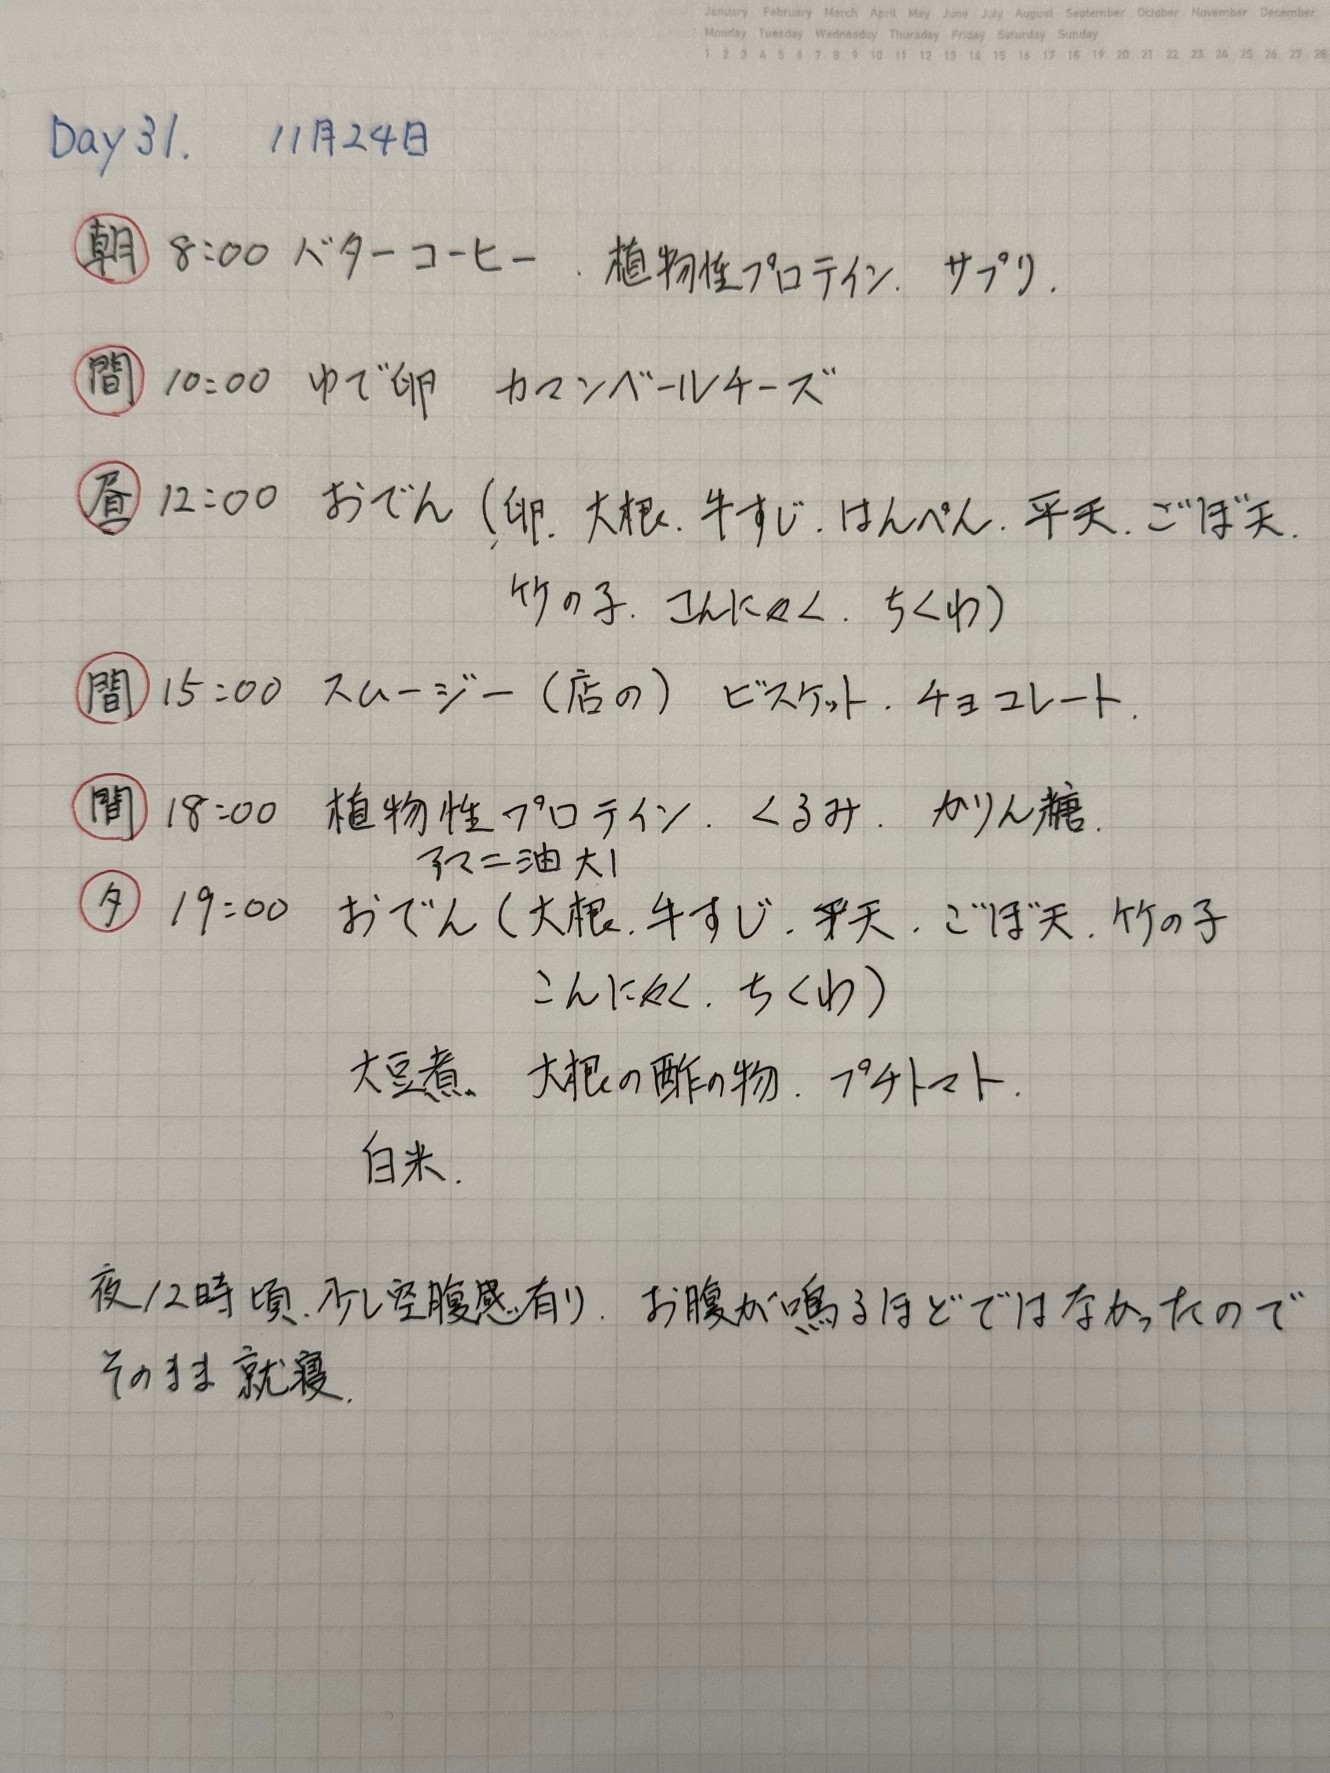 January February March April May June July August September October November December
Monday Tuesday Wednesday Thursday Friday Saturday Sunday
1 2 3 4 5 6 7 8 9 10 11 12 13 14 15 16 17 18 19 20 21 22 23 24 25 26 27 28
Day 31. 11月24日
朝 8:00 バターコーヒー. 植物性プロテイン. サプリ.
間 10:00 ゆで卵 カマンベールチーズ
昼 12:00 おでん (卵. 大根. 牛すじ. はんぺん. 平天. ごぼ天.
竹の子. こんにゃく. ちくわ)
間 15:00 スムージー (店の) ビスケット. チョコレート.
間 18:00 植物性プロテイン. くるみ. かりん糖.
アマニ油大1
夕 19:00 おでん (大根. 牛すじ. 平天. ごぼ天. 竹の子
こんにゃく. ちくわ)
大豆煮. 大根の酢の物. プチトマト.
白米.
夜12時頃. 少し空腹感有り. お腹が鳴るほどではなかったので
そのまま就寝.